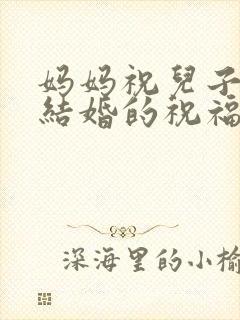 妈妈祝兒子
結婚的祝福
深海里的小榆